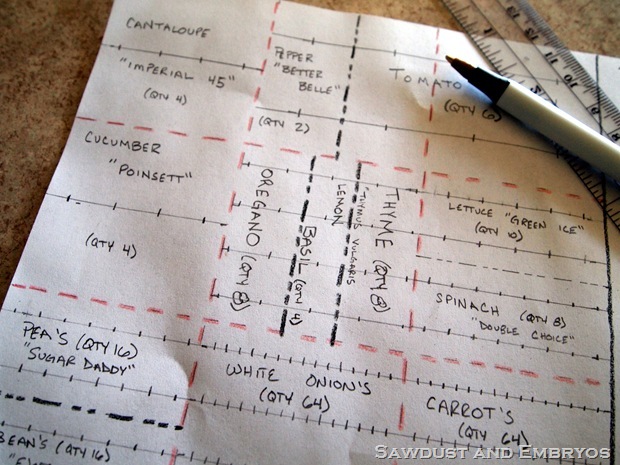 CANTALOUPE
"IMPERIAL 45"
(QTY 4)
PEPPER
"BETTER
BELLE"
(QTY 2)
TOMATO
CUCUMBER
"POINSETT"
(QTY 4)
OREGANO (QTY 8)
BASIL (QTY 4)
LEMON
"THYMUS VULGARIS
THYME (QTY 8)
LETTUCE "GREEN ICE"
(QTY 10)
SPINACH (QTY 8)
"DOUBLE CHOICE"
PEA'S (QTY 16)
"SUGAR DADDY"
WHITE ONION'S
(QTY 64)
CARROT'S
(QTY 64)
BEAN'S (QTY 16)
SAWDUST AND EMBRYOS